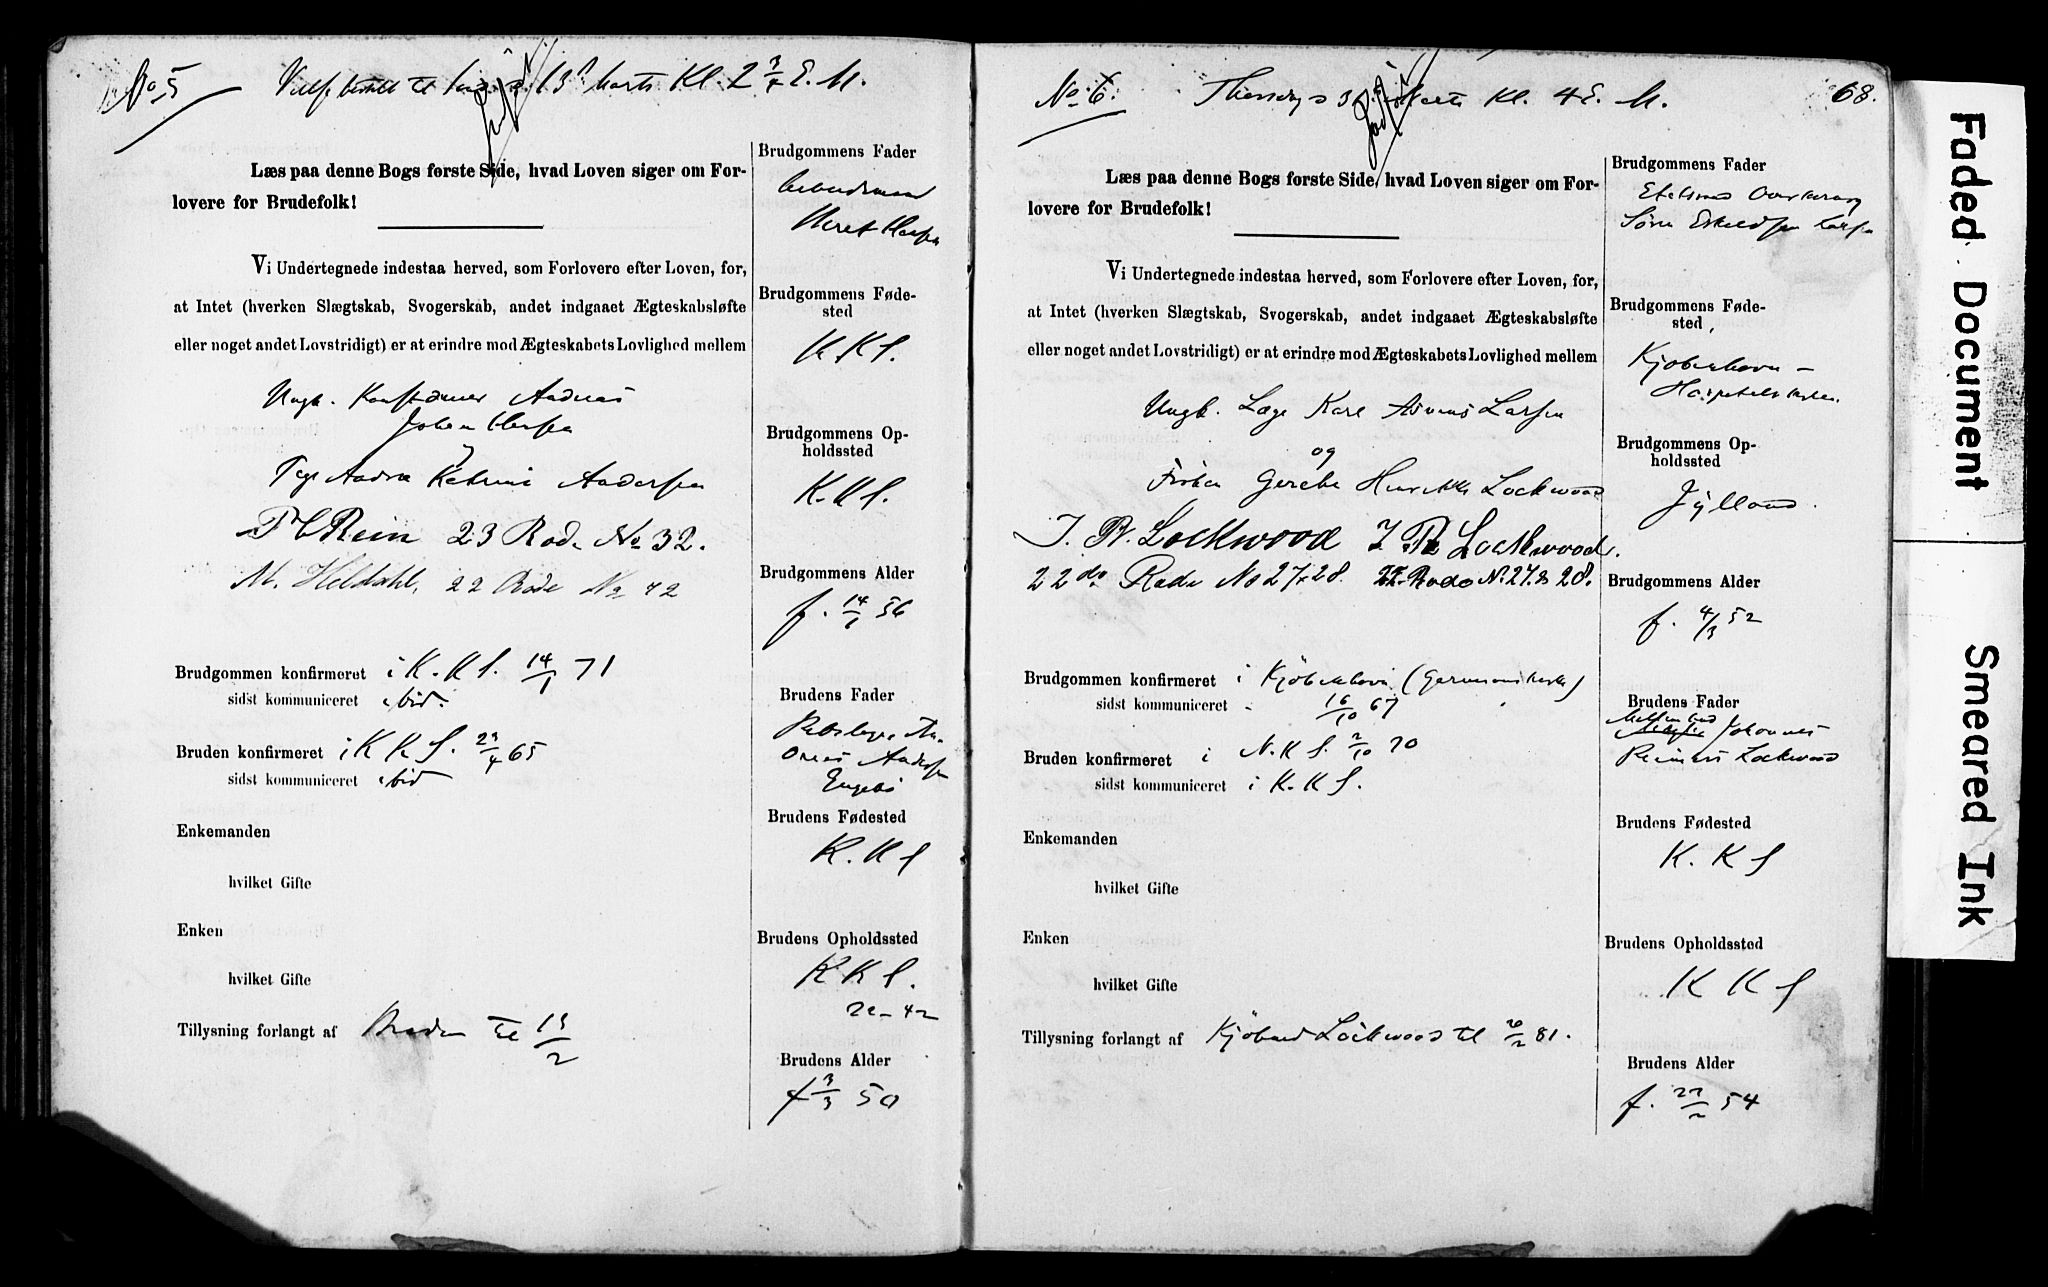 No 5 13de Marts Kl. 2 3/4 E. M.
Læs paa denne Bogs første Side, hvad Loven siger om For-
lovere for Brudefolk!
Vi Undertegnede indestaa herved, som Forlovere efter Loven, for,
at Intet (hverken Slægtskab, Svogerskab, andet indgaaet Ægteskabsløfte
eller noget andet Lovstridigt) er at erindre mod Ægteskabets Lovlighed mellem
Ungk. Andreas
Johan
Pige Katrine Andersen
Rein 23 Rode No 32.
M. Heldahl, 22 Rode No 42
Brudgommen konfirmeret i K. K S. 14/1 71
sidst kommuniceret ibid.
Bruden konfirmeret i K K S. 23/4 65
sidst kommuniceret ibid
Enkemanden
hvilket Gifte
Enken
hvilket Gifte
Tillysning forlangt af Bruden til 13/2
Brudgommens Fader
Arbeidsmand
Brudgommens Føde-
sted
K K S.
Brudgommens Op-
holdssted
K. K S.
Brudgommens Alder
f. 14/1 56
Brudens Fader
An-
dreas Andersen
Engebø
Brudens Fødested
K. K S
Brudens Opholdssted
K K S.
22 - 42
Brudens Alder
f 3/3 50
No. 6. Thorsdag 3 Marts Kl. 4 E. M. 68.
Læs paa denne Bogs første Side, hvad Loven siger om For-
lovere for Brudefolk!
Vi Undertegnede indestaa herved, som Forlovere efter Loven, for,
at Intet (hverken Slægtskab, Svogerskab, andet indgaaet Ægteskabsløfte
eller noget andet Lovstridigt) er at erindre mod Ægteskabets Lovlighed mellem
Ungk. Læge Karl Larsen
og
Frøken Gesche Henrikke Lockwood
J. R. Lockwood J. R. Lockwood.
22de Rode No 27 & 28. 22 Rode No 27 & 28.
Brudgommen konfirmeret i Kjøbenhavn (Garnisonskirke)
sidst kommuniceret 16/10 67
Bruden konfirmeret i N. K S. 2/10 70
sidst kommuniceret i K. K S.
Enkemanden
hvilket Gifte
Enken
hvilket Gifte
Tillysning forlangt af Kjøbmd Lockwood til 20/2 81.
Brudgommens Fader
Etatsraad
Søren Eskildsen Larsen
Brudgommens Føde-
sted
Kjøbenhavn -
Brudgommens Op-
holdssted
Jylland.
Brudgommens Alder
f. 4/3 52
Brudens Fader
Johannes
Reimers Lockwood
Brudens Fødested
K. K S
Brudens Opholdssted
K K S
Brudens Alder
f. 22/2 54
Faded Document
Smeared Ink